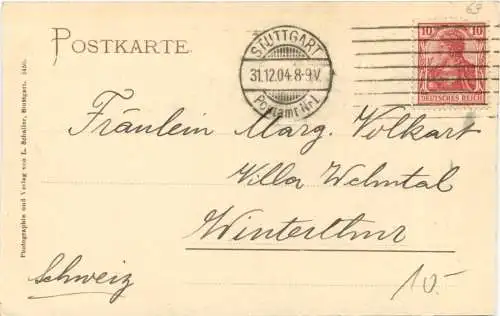 POSTKARTE
STUTTGART
31.12.04.8-9V
Postamt Nr 1
10 10
DEUTSCHES REICH
69
Fräulein Marg. Volkart
Villa Wehntal
Winterthur
Schweiz
10.-
Photographie und Verlag von L. Schaller, Stuttgart. 5450.